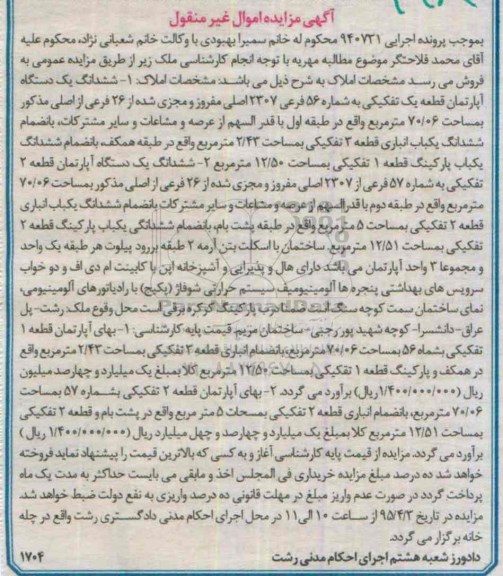 آگهی مزایده اموال غیر منقول
بموجب پرونده اجرایی ۹۴۰۷۳۱ محکوم له خانم سمیرا بهبودی با وکالت خانم شعبانی نژاد، محکوم علیه
آقای محمد فلاحتگر موضوع مطالبه مهریه با توجه انجام کارشناسی ملک زیر از طریق مزایده عمومی به
فروش می رسد مشخصات املاک به شرح ذیل می باشد: مشخصات املاک: ۱- ششدانگ یک دستگاه
آپارتمان قطعه یک تفکیکی به شماره ۵۶ فرعی ۲۳۰۷ اصلی مفروز و مجزی شده از ۲۶ فرعی از اصلی مذکور
بمساحت ۷۰/۰۶ مترمربع واقع در طبقه اول با قدر السهم از عرصه و مشاعات و سایر مشترکات، بانضمام
ششدانگ یکباب انباری قطعه ۳ تفکیکی بمساحت ۲/۴۳ مترمربع واقع در طبقه همکف، بانضمام ششدانگ
یکباب پارکینگ قطعه ۱ تفکیکی بمساحت ۱۲/۵۰ مترمربع ۲- ششدانگ یک دستگاه آپارتمان قطعه ۲
تفکیکی به شماره ۵۷ فرعی از ۲۳۰۷ اصلی مفروز و مجزی شده از ۲۶ فرعی از اصلی مذکور بمساحت ۷۰/۰۶
مترمربع واقع در طبقه دوم با قدرالسهم از عرصه و مشاعات و سایر مشترکات بانضمام ششدانگ یکباب انباری
قطعه ۲ تفکیکی بمساحت ۵ مترمربع واقع در طبقه پشت بام، بانضمام ششدانگی یکباب پارکینگ قطعه ۲
تفکیکی بمساحت ۱۲/۵۱ مترمربع. ساختمان با اسکلت بتن آرمه ۲ طبقه برروی پیلوت هر طبقه یک واحد
و مجموعا ۲ واحد آپارتمان می باشد دارای هال و پذیرایی و آشپزخانه اپن با کابینت ام دی اف و دو خواب
سرویس های بهداشتی پنجره ها آلومینیومی، سیستم حرارتی شوفاژ (پکیج) با رادیاتورهای آلومینیومی،
نمای ساختمان سمت کوچه سنگ است ضمنا درب پارکینگ کرکره برقی است محل وقوع ملک: رشت- پل
عراق- دانشسرا- کوچه شهید پور رجبی- ساختمان مریم. قیمت پایه کارشناسی: ۱- بهای آپارتمان قطعه ۱
تفکیکی بشماه ۵۶ بمساحت ۷۰/۰۶ مترمربع، بانضمام انباری قطعه ۳ تفکیکی بمساحت ۲/۴۳ مترمربع واقع
در همکف و پارکینگ قطعه ۱ تفکیکی بمساحت ۱۲/۵۰ مترمربع کلا بمبلغ یک میلیارد و چهارصد میلیون
ریال (۱/۴۰۰/۰۰۰/۰۰۰ ریال) برآورد می گردد. ۲- بهای آپارتمان قطعه ۲ تفکیکی بشماره ۵۷ بمساحت
۷۰/۰۶ مترمربع، بانضمام انباری قطعه ۲ تفکیکی بمسحات ۵ متر مربع واقع در پشت بام و قطعه ۲ تفکیکی
بمساحت ۱۲/۵۱ مترمربع کلا بمبلغ یک میلیارد و چهارصد و چهل میلیارد ریال (۱/۴۰۰/۰۰۰/۰۰۰ ریال)
برآورد می گردد. مزایده از قیمت پایه کارشناسی آغاز و به کسی که بالاترین قیمت را پیشنهاد نماید فروخته
خواهد شد ده درصد مبلغ مزایده خریداری فی المجلس اخذ و مابقی می بایست حداکثر به مدت یک ماه
پرداخت گردد در صورت عدم واریز مبلغ در مهلت قانونی ده درصد واریزی به نفع دولت ضبط خواهد شد.
مزایده در تاریخ ۹۵/۴/۳ از ساعت ۱۰ الی ۱۱ در محل اجرای احکام مدنی دادگستری رشت واقع در چله
خانه برگزار می گردد.
دادورز شعبه هشتم اجرای احکام مدنی رشت ۱۷۰۴